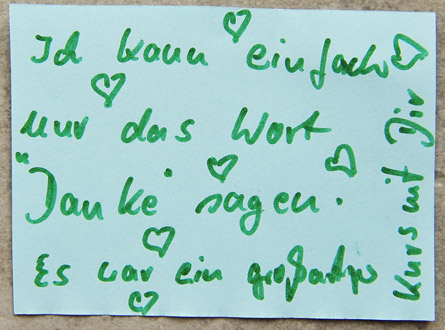 Ich kann einfach
nur das Wort
"Danke" sagen.
Es war ein großartiger
Kurs mit Dir